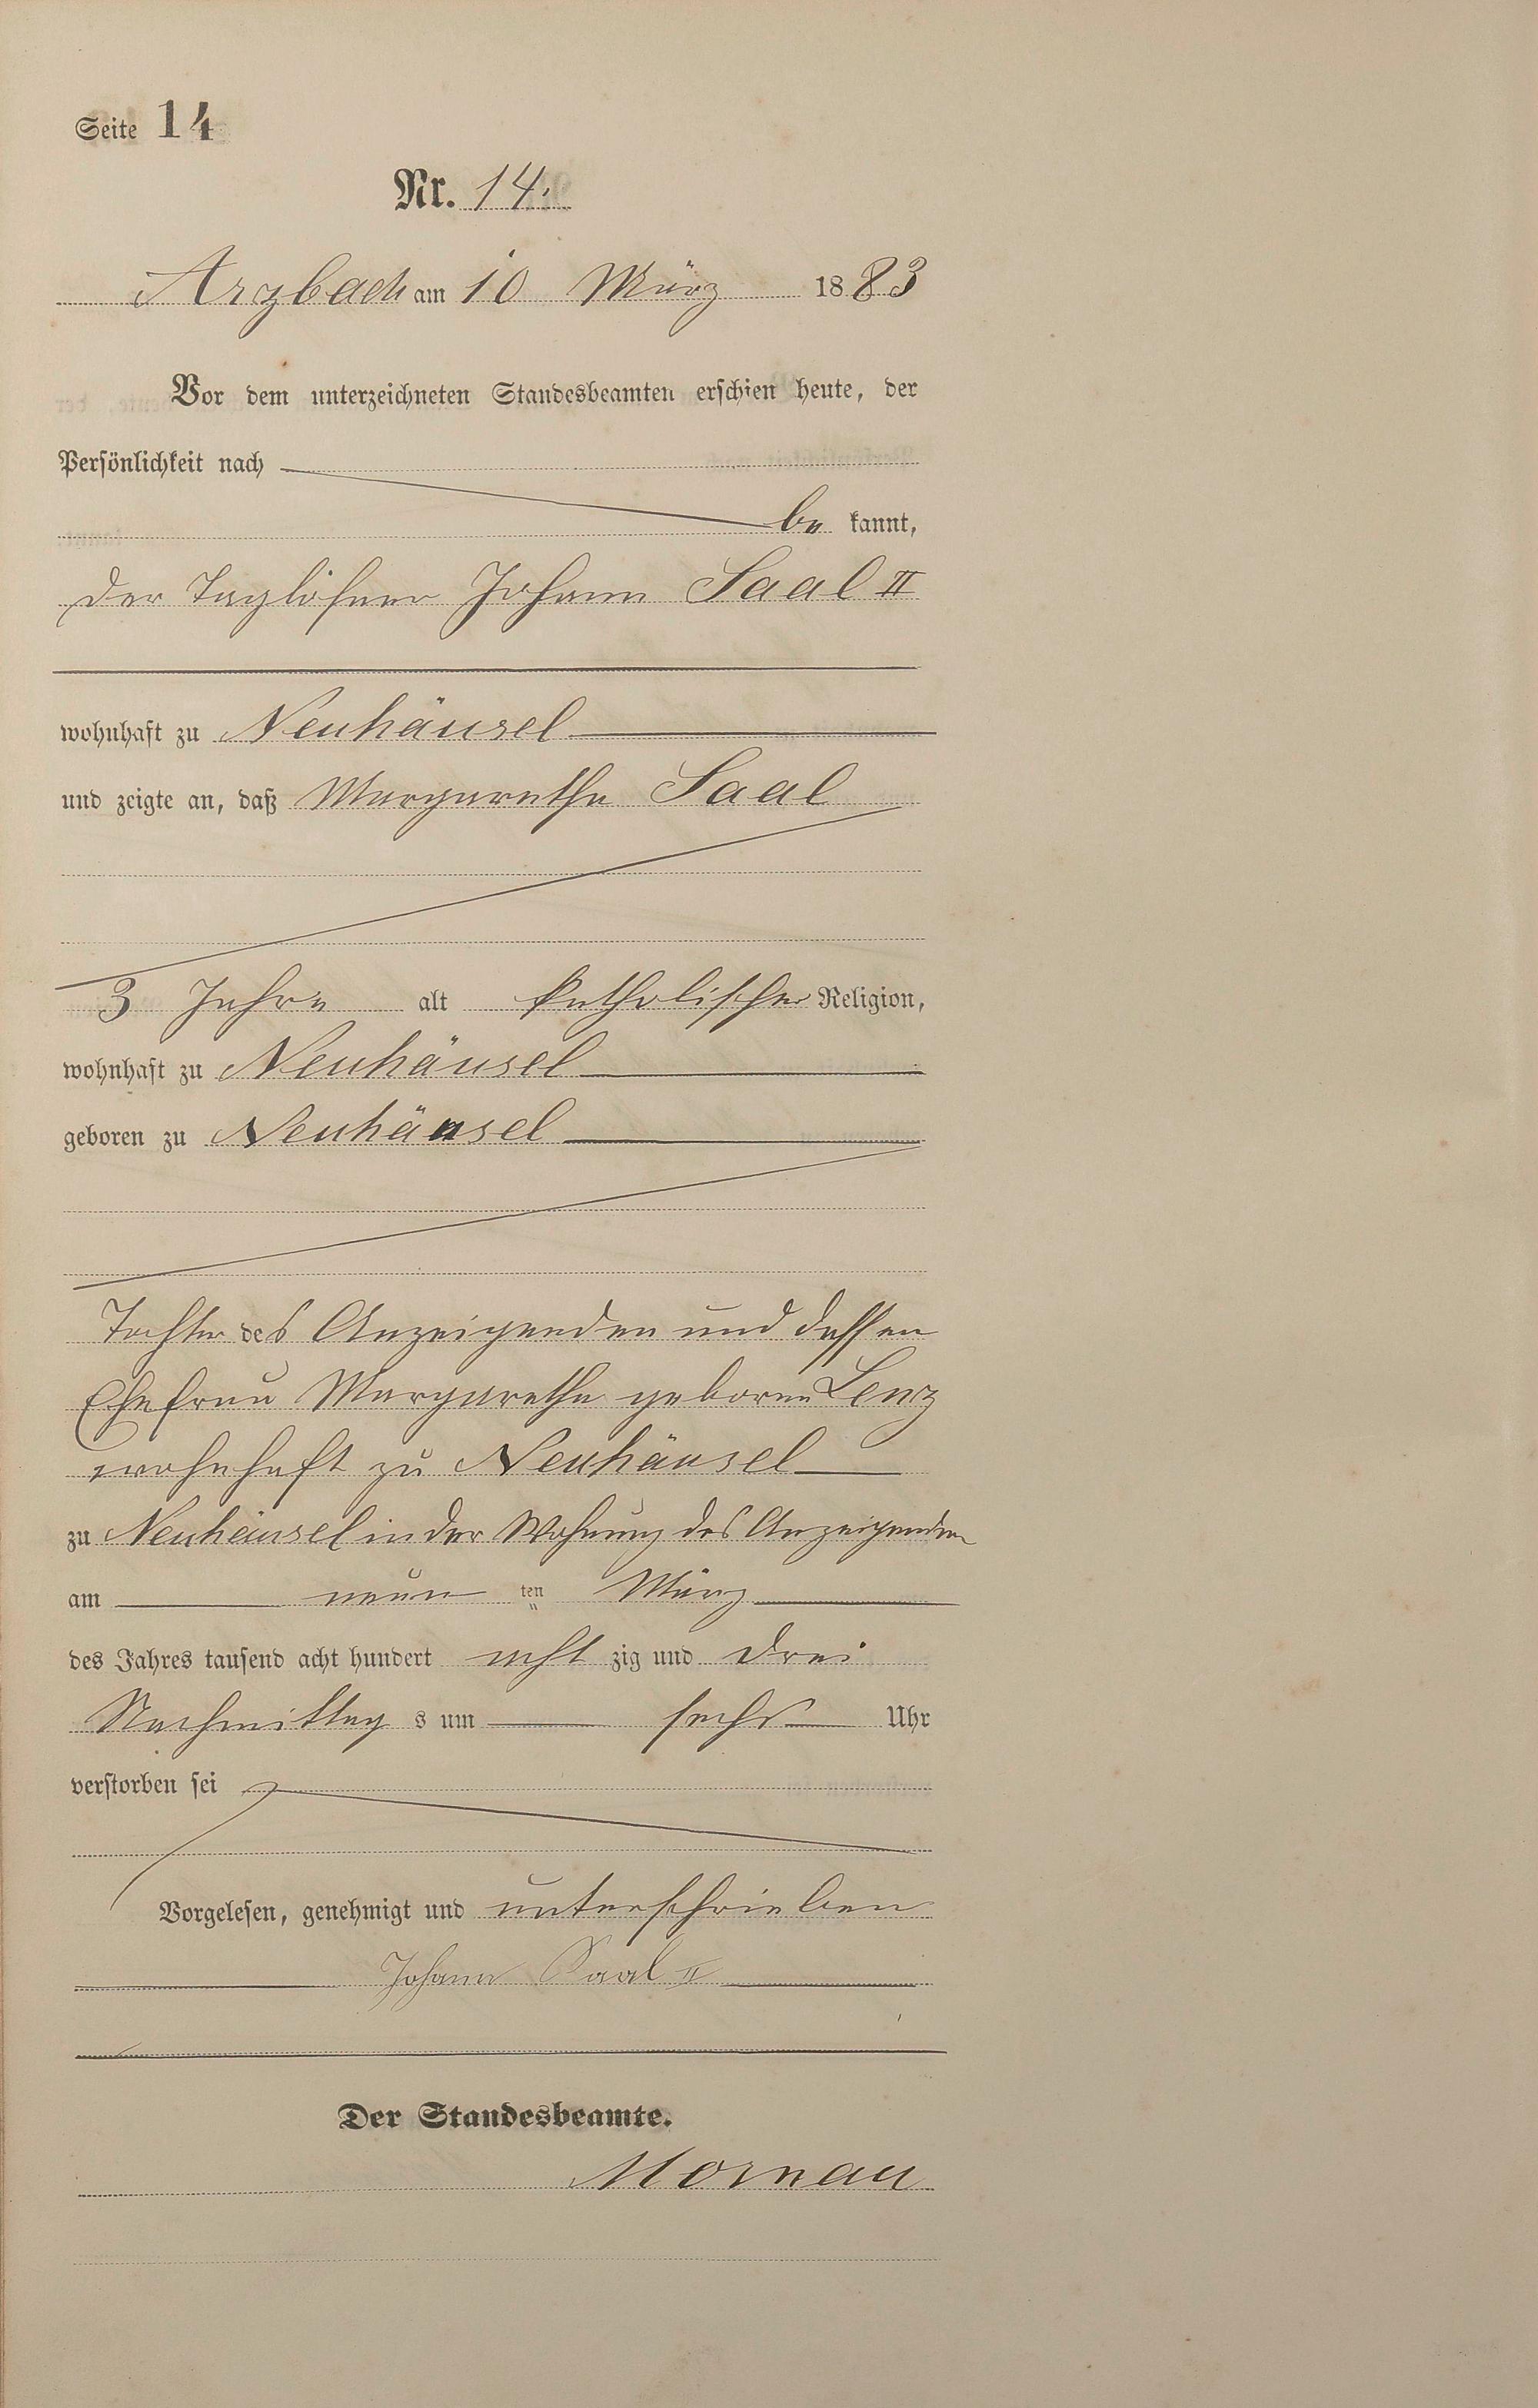 Seite 14
Nr. 14.
Arzbach am 10 März 1883
Vor dem unterzeichneten Standesbeamten erschien heute, der
Persönlichkeit nach
be kannt,
der Taglöhner Johann Saal II
wohnhaft zu Neuhäusel
und zeigte an, daß Margarethe Saal
3 Jahre alt katholischer Religion,
wohnhaft zu Neuhäusel
geboren zu Neuhäusel
Tochter des Anzeigenden und dessen
Ehefrau Margarethe geborne Lenz
wohnhaft zu Neuhäusel
zu Neuhäusel in der Wohnung des Anzeigenden
am neun ten März
des Jahres tausend acht hundert acht zig und drei
Nachmittag s um sechs Uhr
verstorben sei
Vorgelesen, genehmigt und unterschrieben
Johann Saal II
Der Standesbeamte.
Mornau